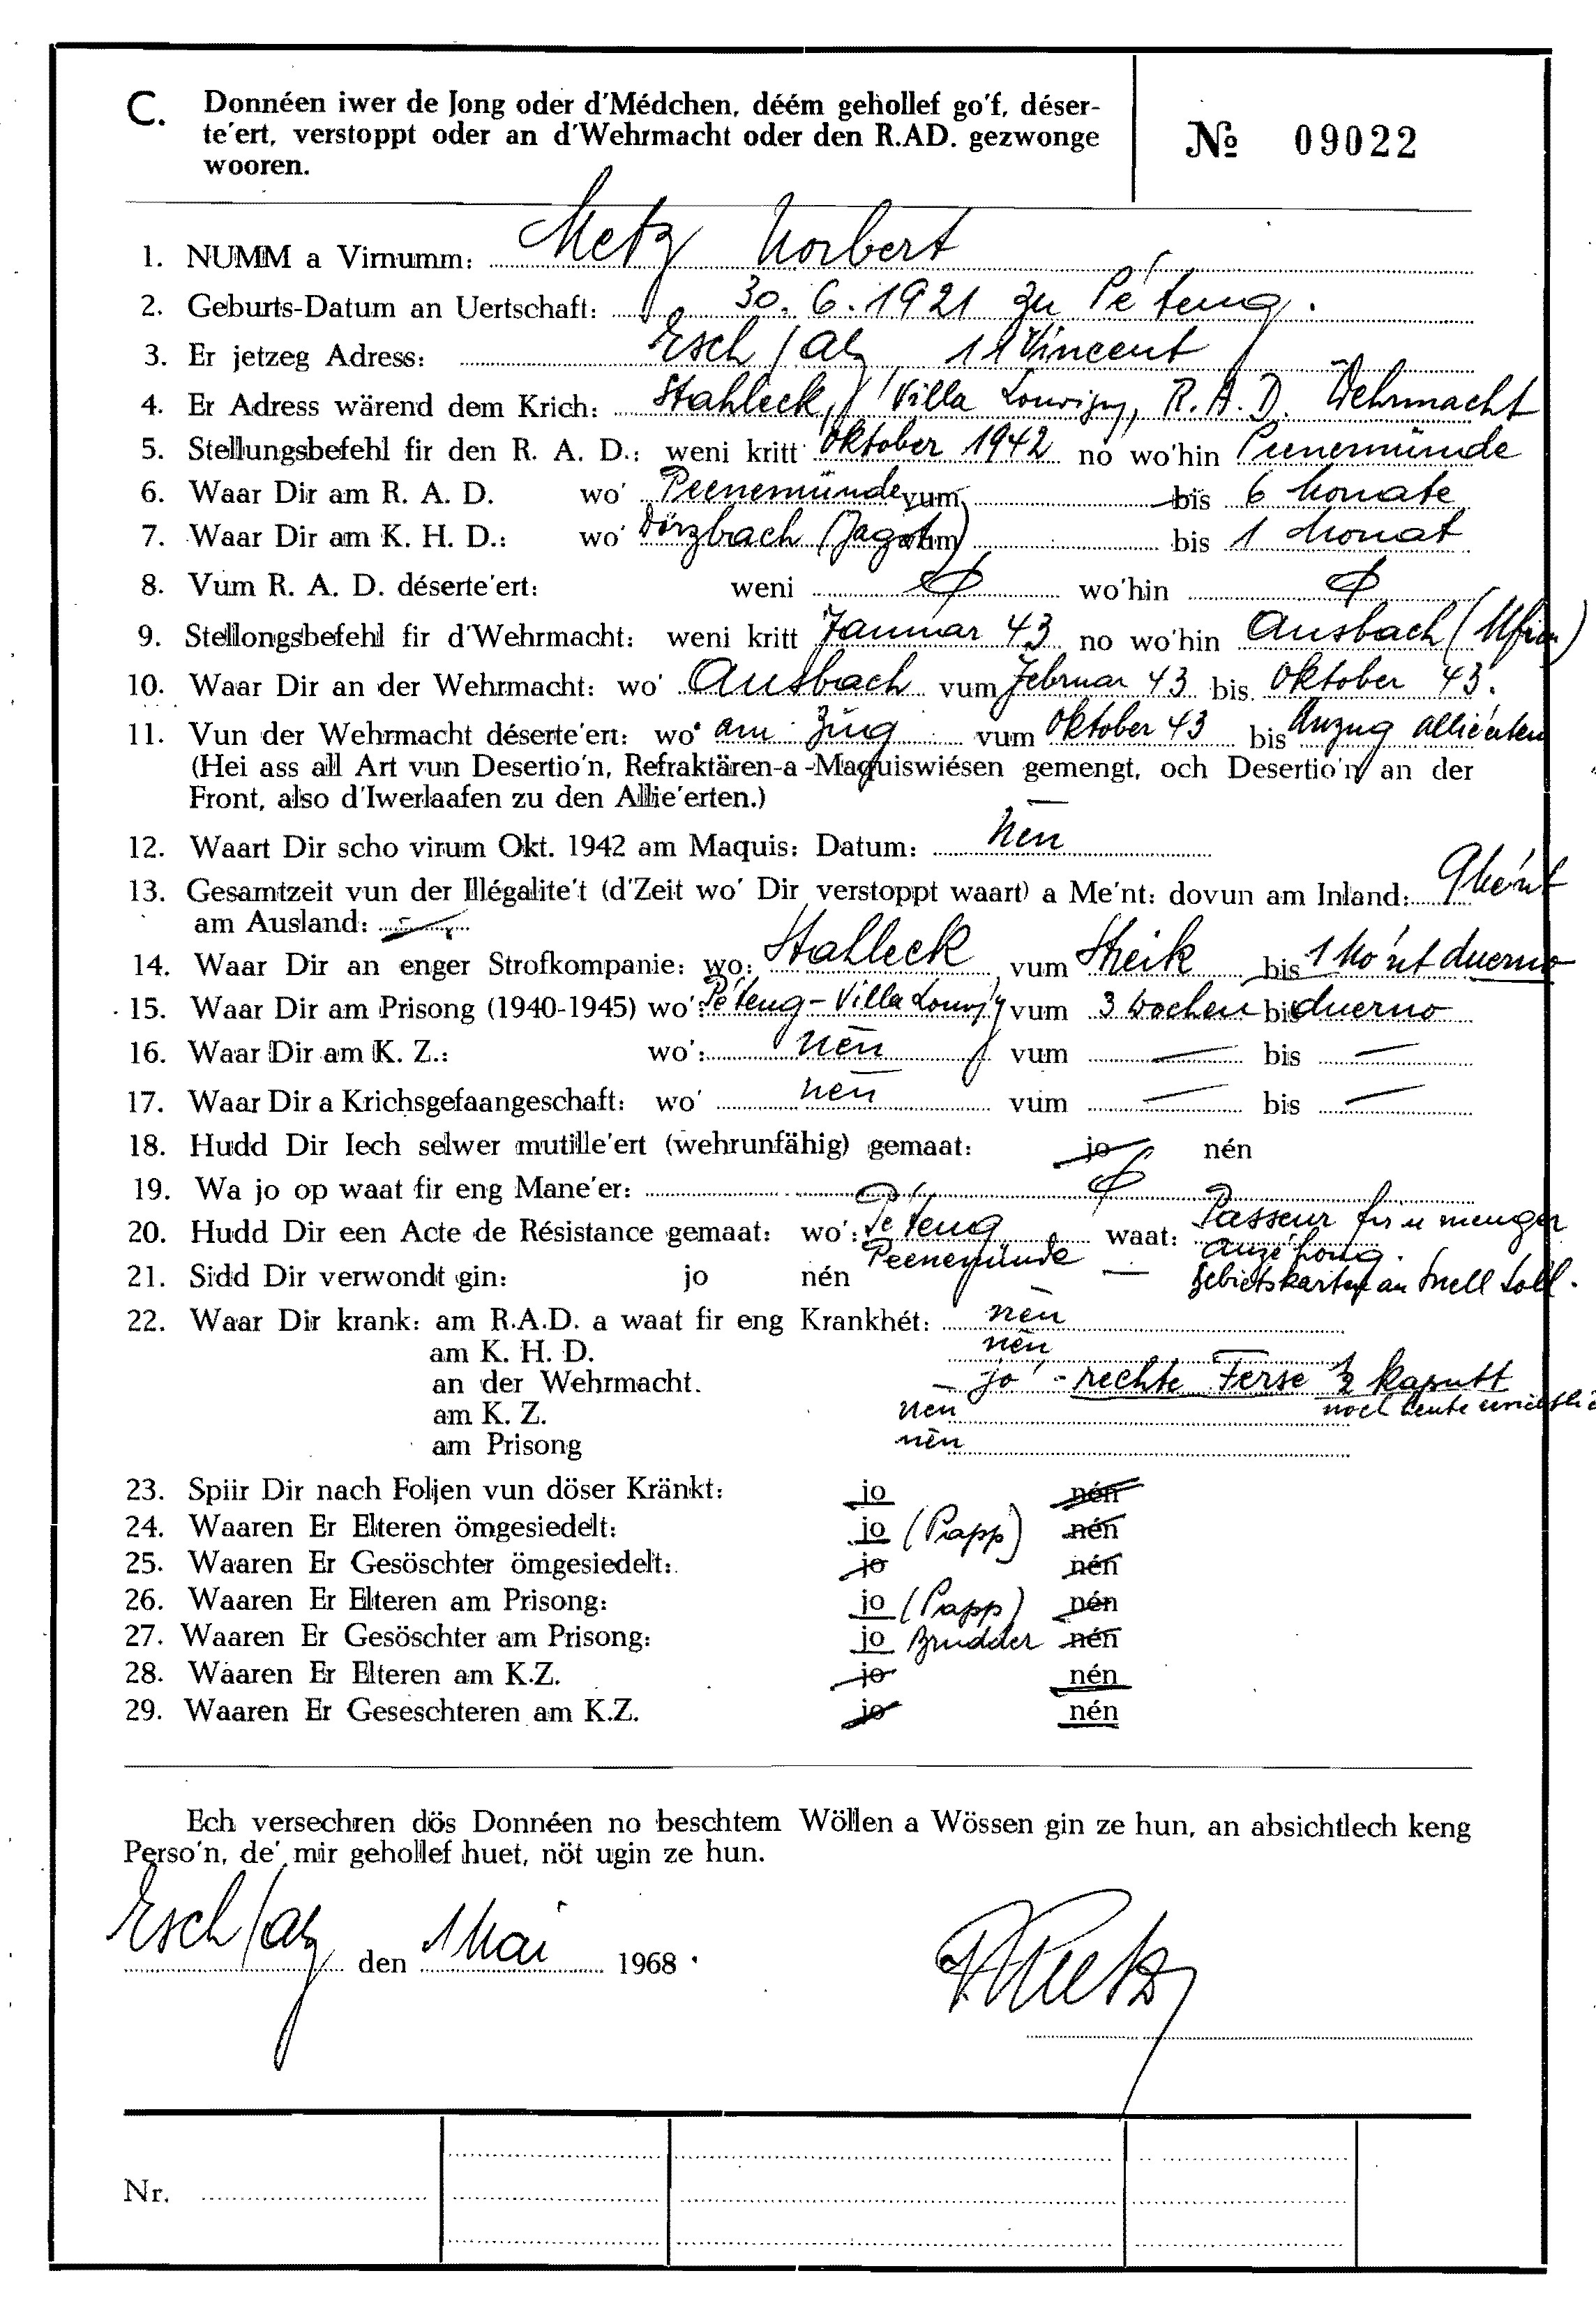 C. Donnéen iwer de Jong oder d'Médchen, déém gehollef go'f, déser-
te'ert, verstoppt oder an d'Wehrmacht oder den R.AD. gezwonge
wooren.
№ 09022
1. NUMM a Virnumm: Metz Norbert
2. Geburts-Datum an Uertschaft: 30. 6. 1921 zu Pé'teng.
3. Er jetzeg Adress: Esch / Alz 11 Vincent
4. Er Adress wärend dem Krich: Stahleck, Villa Louvigny, R.A.D. Wehrmacht
5. Stellungsbefehl fir den R. A. D.: weni kritt Oktober 1942 no wo'hin Peenemünde
6. Waar Dir am R. A. D. wo' Peenemünde vum bis 6 Monate
7. Waar Dir am K. H. D.: wo' Dörzbach (Jagst) vum bis 1 Monat
8. Vum R. A. D. déserte'ert: weni ϕ wo'hin ϕ
9. Stellongsbefehl fir d'Wehrmacht: weni kritt Januar 43 no wo'hin Ansbach
10. Waar Dir an der Wehrmacht: wo' Ansbach vum Februar 43 bis Oktober 43.
11. Vun der Wehrmacht déserte'ert: wo' am Zug vum Oktober 43 bis Anzug
(Hei ass all Art vun Desertio'n, Refraktären-a-Maquiswiésen gemengt, och Desertio'n an der
Front, also d'Iwerlaafen zu den Allie'erten.)
12. Waart Dir scho virum Okt. 1942 am Maquis: Datum: nén
13. Gesamtzeit vun der Illégalite't (d'Zeit wo' Dir verstoppt waart) a Me'nt: dovun am Inland: 9 Mé'nt
am Ausland: —
14. Waar Dir an enger Strofkompanie: wo: Stahleck vum Streik bis 1 Mo'nt duerno
15. Waar Dir am Prisong (1940-1945) wo': Pé'teng - Villa Louvigny vum 3 Wochen bis duerno
16. Waar Dir am K. Z.: wo': nén vum — bis —
17. Waar Dir a Krichsgefaangeschaft: wo' nén vum — bis —
18. Hudd Dir Iech selwer mutille'ert (wehrunfähig) gemaat: jo nén
19. Wa jo op waat fir eng Mane'er: ϕ
20. Hudd Dir een Acte de Résistance gemaat: wo': Pé'teng waat: Passeur fir u menger
Peenemünde — 
21. Sidd Dir verwondt gin: jo nén Gebietskarten an
22. Waar Dir krank: am R.A.D. a waat fir eng Krankhét: nén
am K. H. D. nén
an der Wehrmacht. — jo - rechte Ferse ½ kaputt
am K. Z. nén noch heute
am Prisong nén
23. Spiir Dir nach Foljen vun döser Kränkt: jo nén
24. Waaren Er Elteren ömgesiedelt: jo (Papp) nén
25. Waaren Er Gesöschter ömgesiedelt: jo nén
26. Waaren Er Elteren am Prisong: jo (Papp) nén
27. Waaren Er Gesöschter am Prisong: jo Brudder nén
28. Waaren Er Elteren am K.Z. jo nén
29. Waaren Er Geseschteren am K.Z. jo nén
Ech versechren dös Donnéen no beschtem Wöllen a Wössen gin ze hun, an absichtlech keng
Perso'n, de' mir gehollef huet, nöt ugin ze hun.
Esch / Alz den 1 Mai 1968
NMetz
Nr.